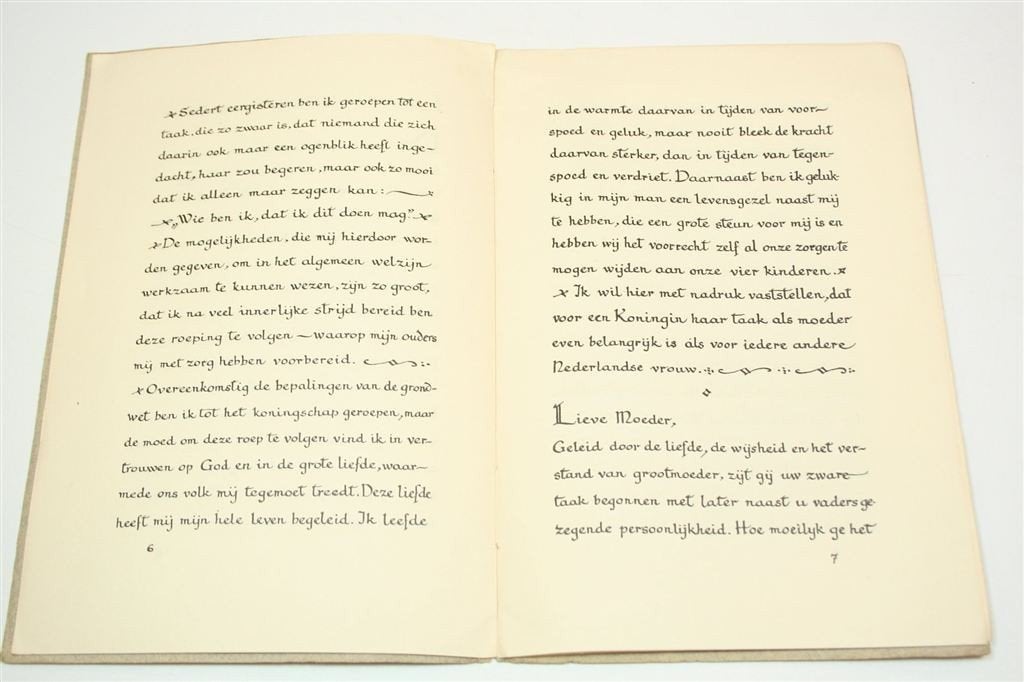 Sedert eergisteren ben ik geroepen tot een
taak, die zo zwaar is, dat niemand die zich
daarin ook maar een ogenblik heeft inge-
dacht, haar zou begeren, maar ook zo mooi
dat ik alleen maar zeggen kan:
„Wie ben ik, dat ik dit doen mag."
De mogelijkheden, die mij hierdoor wor-
den gegeven, om in het algemeen welzijn
werkzaam te kunnen wezen, zijn zo groot,
dat ik na veel innerlijke strijd bereid ben
deze roeping te volgen — waarop mijn ouders
mij met zorg hebben voorbereid.
Overeenkomstig de bepalingen van de grond-
wet ben ik tot het koningschap geroepen, maar
de moed om deze roep te volgen vind ik in ver-
trouwen op God en in de grote liefde, waar-
mede ons volk mij tegemoet treedt. Deze liefde
heeft mij mijn hele leven begeleid. Ik leefde
6
in de warmte daarvan in tijden van voor-
spoed en geluk, maar nooit bleek de kracht
daarvan sterker, dan in tijden van tegen-
spoed en verdriet. Daarnaast ben ik geluk-
kig in mijn man een levensgezel naast mij
te hebben, die een grote steun voor mij is en
hebben wij het voorrecht zelf al onze zorgen te
mogen wijden aan onze vier kinderen.
Ik wil hier met nadruk vaststellen, dat
voor een Koningin haar taak als moeder
even belangrijk is als voor iedere andere
Nederlandse vrouw.
Lieve Moeder,
Geleid door de liefde, de wijsheid en het ver-
stand van grootmoeder, zijt gij uw zware
taak begonnen met later naast u vaders ge-
zegende persoonlijkheid. Hoe moeilyk ge het
7